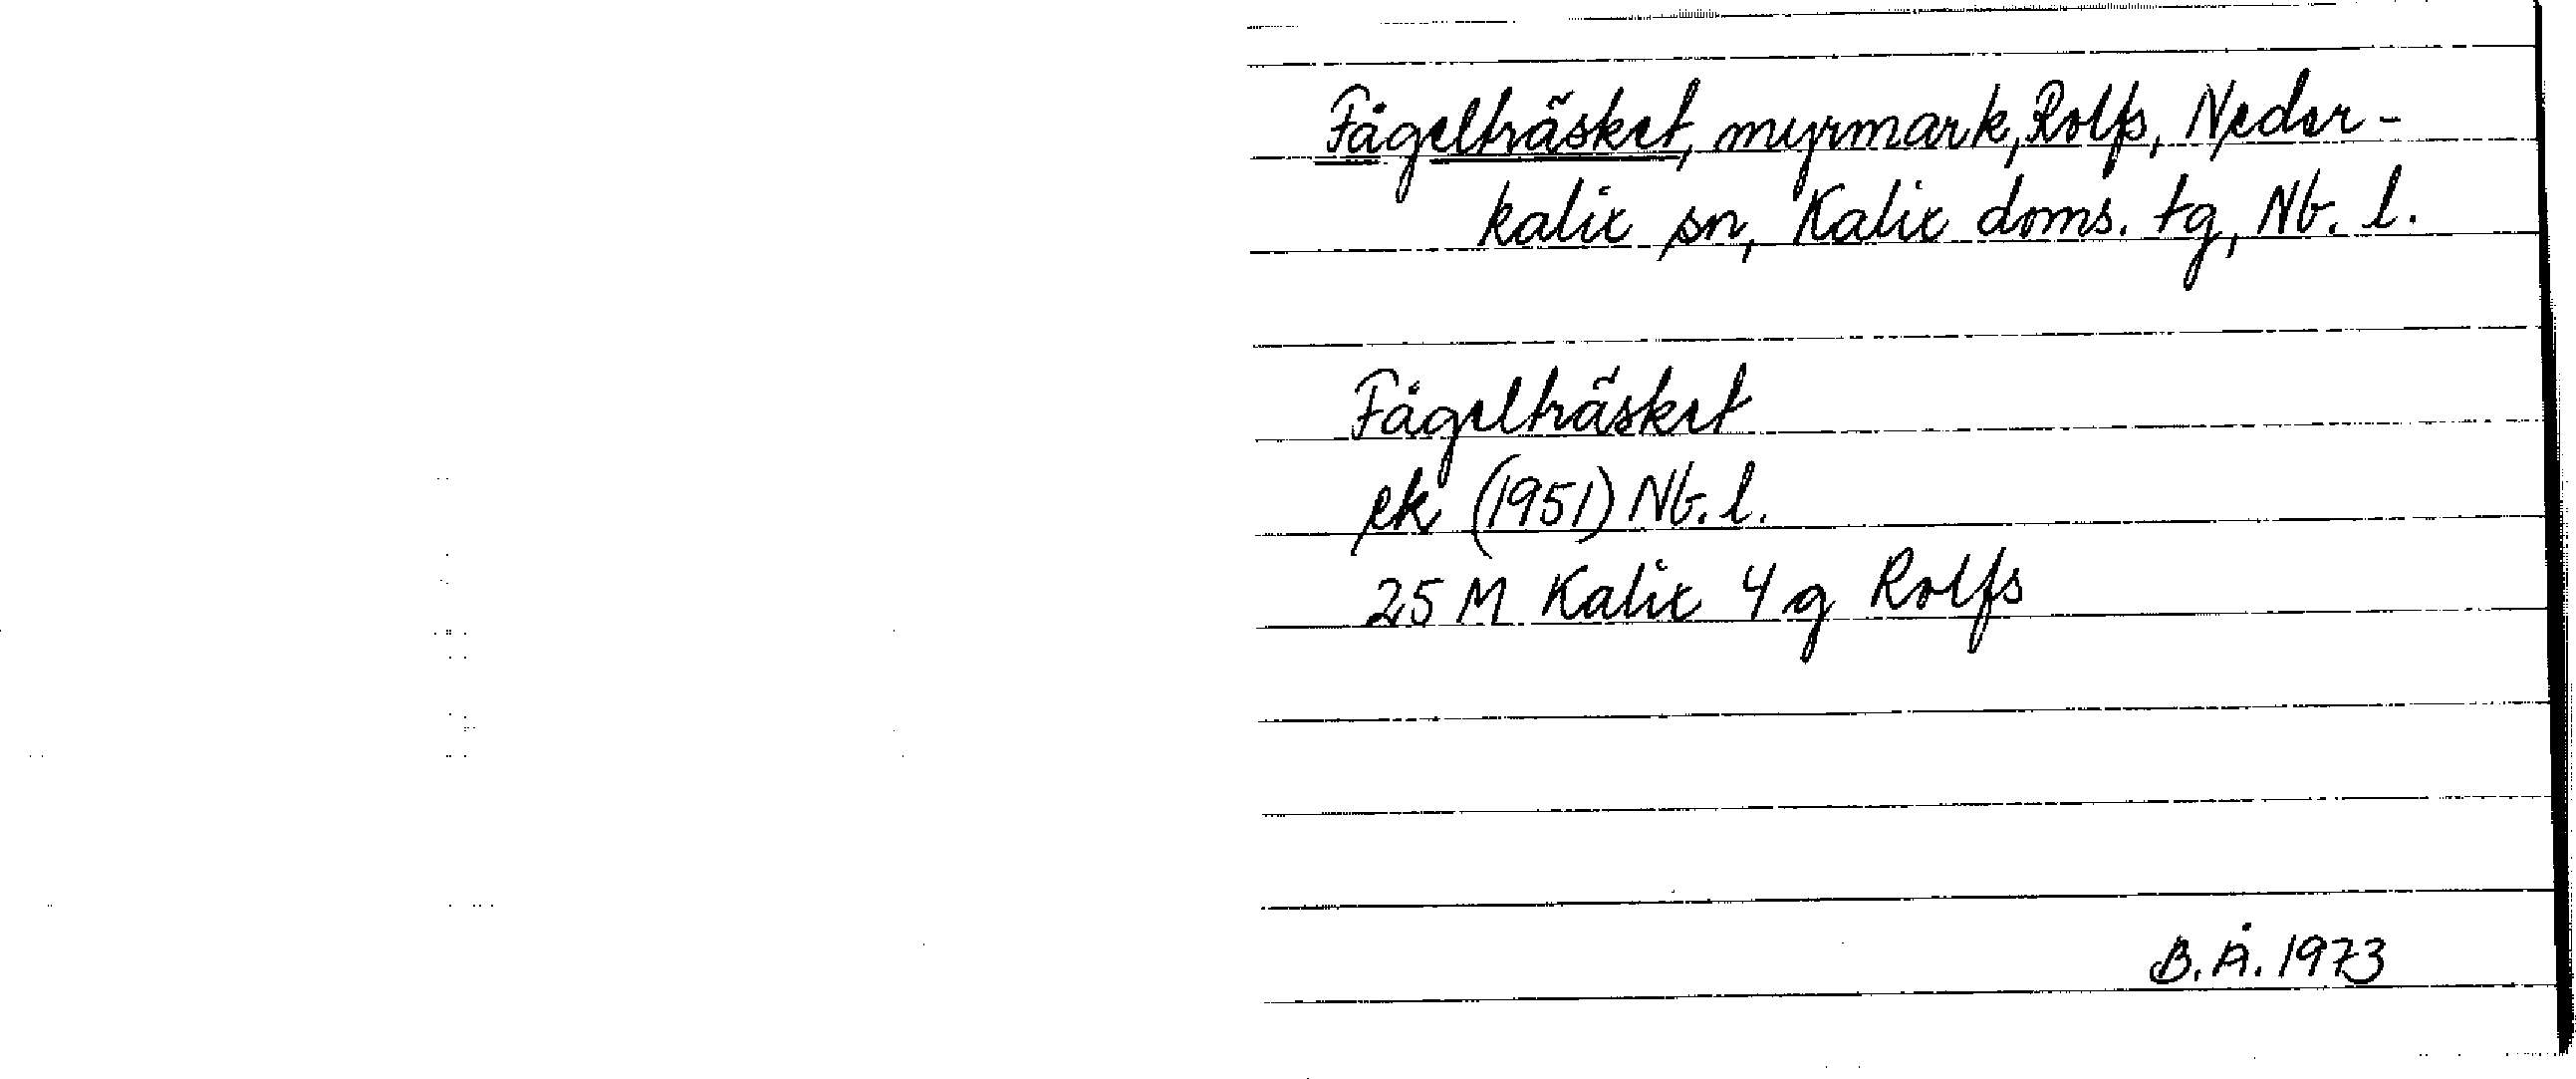 Fågelträsket, myrmark, Rolfs, Neder-
kalix sn, Kalix doms. tg, Nb. l.
Fågelträsket
ek (1951) Nb. l.
25 M Kalix 4 g Rolfs
B. Å. 1973